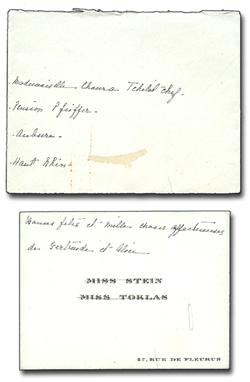 Mademoiselle Chana
Pension Pfeiffer.
Aubure.
Haut Rhin
Bonnes fêtes et milles choses affectueuses
de Gertrude et Alice
MISS STEIN
MISS TOKLAS
27, RUE DE FLEURUS